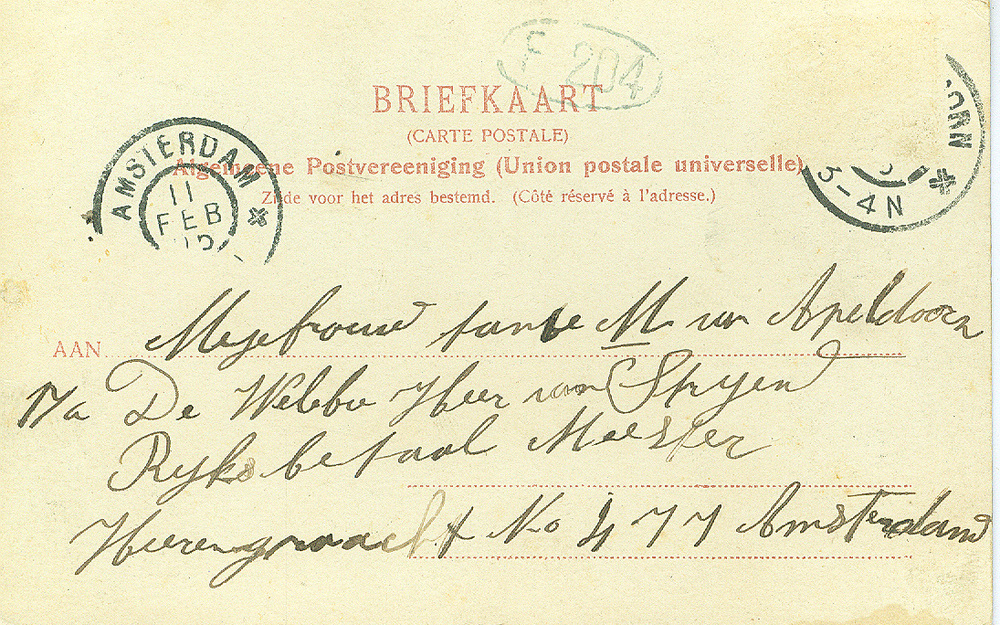 F 204
BRIEFKAART
(CARTE POSTALE)
Algemeene Postvereeniging (Union postale universelle)
Zijde voor het adres bestemd. (Côté réservé à l'adresse.)
AMSTERDAM
11
FEB
OORN
3-4N
AAN Mejefrouw tante M van Apeldoorn
De Heer van Stryen
Ryks betaal Meester
Heerengracht No 477 Amsterdam